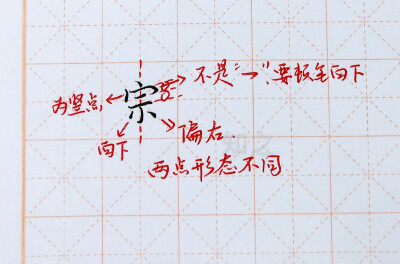 不是"一",要顿笔向下
为竖点
宗
向下
偏右.
两点形态不同